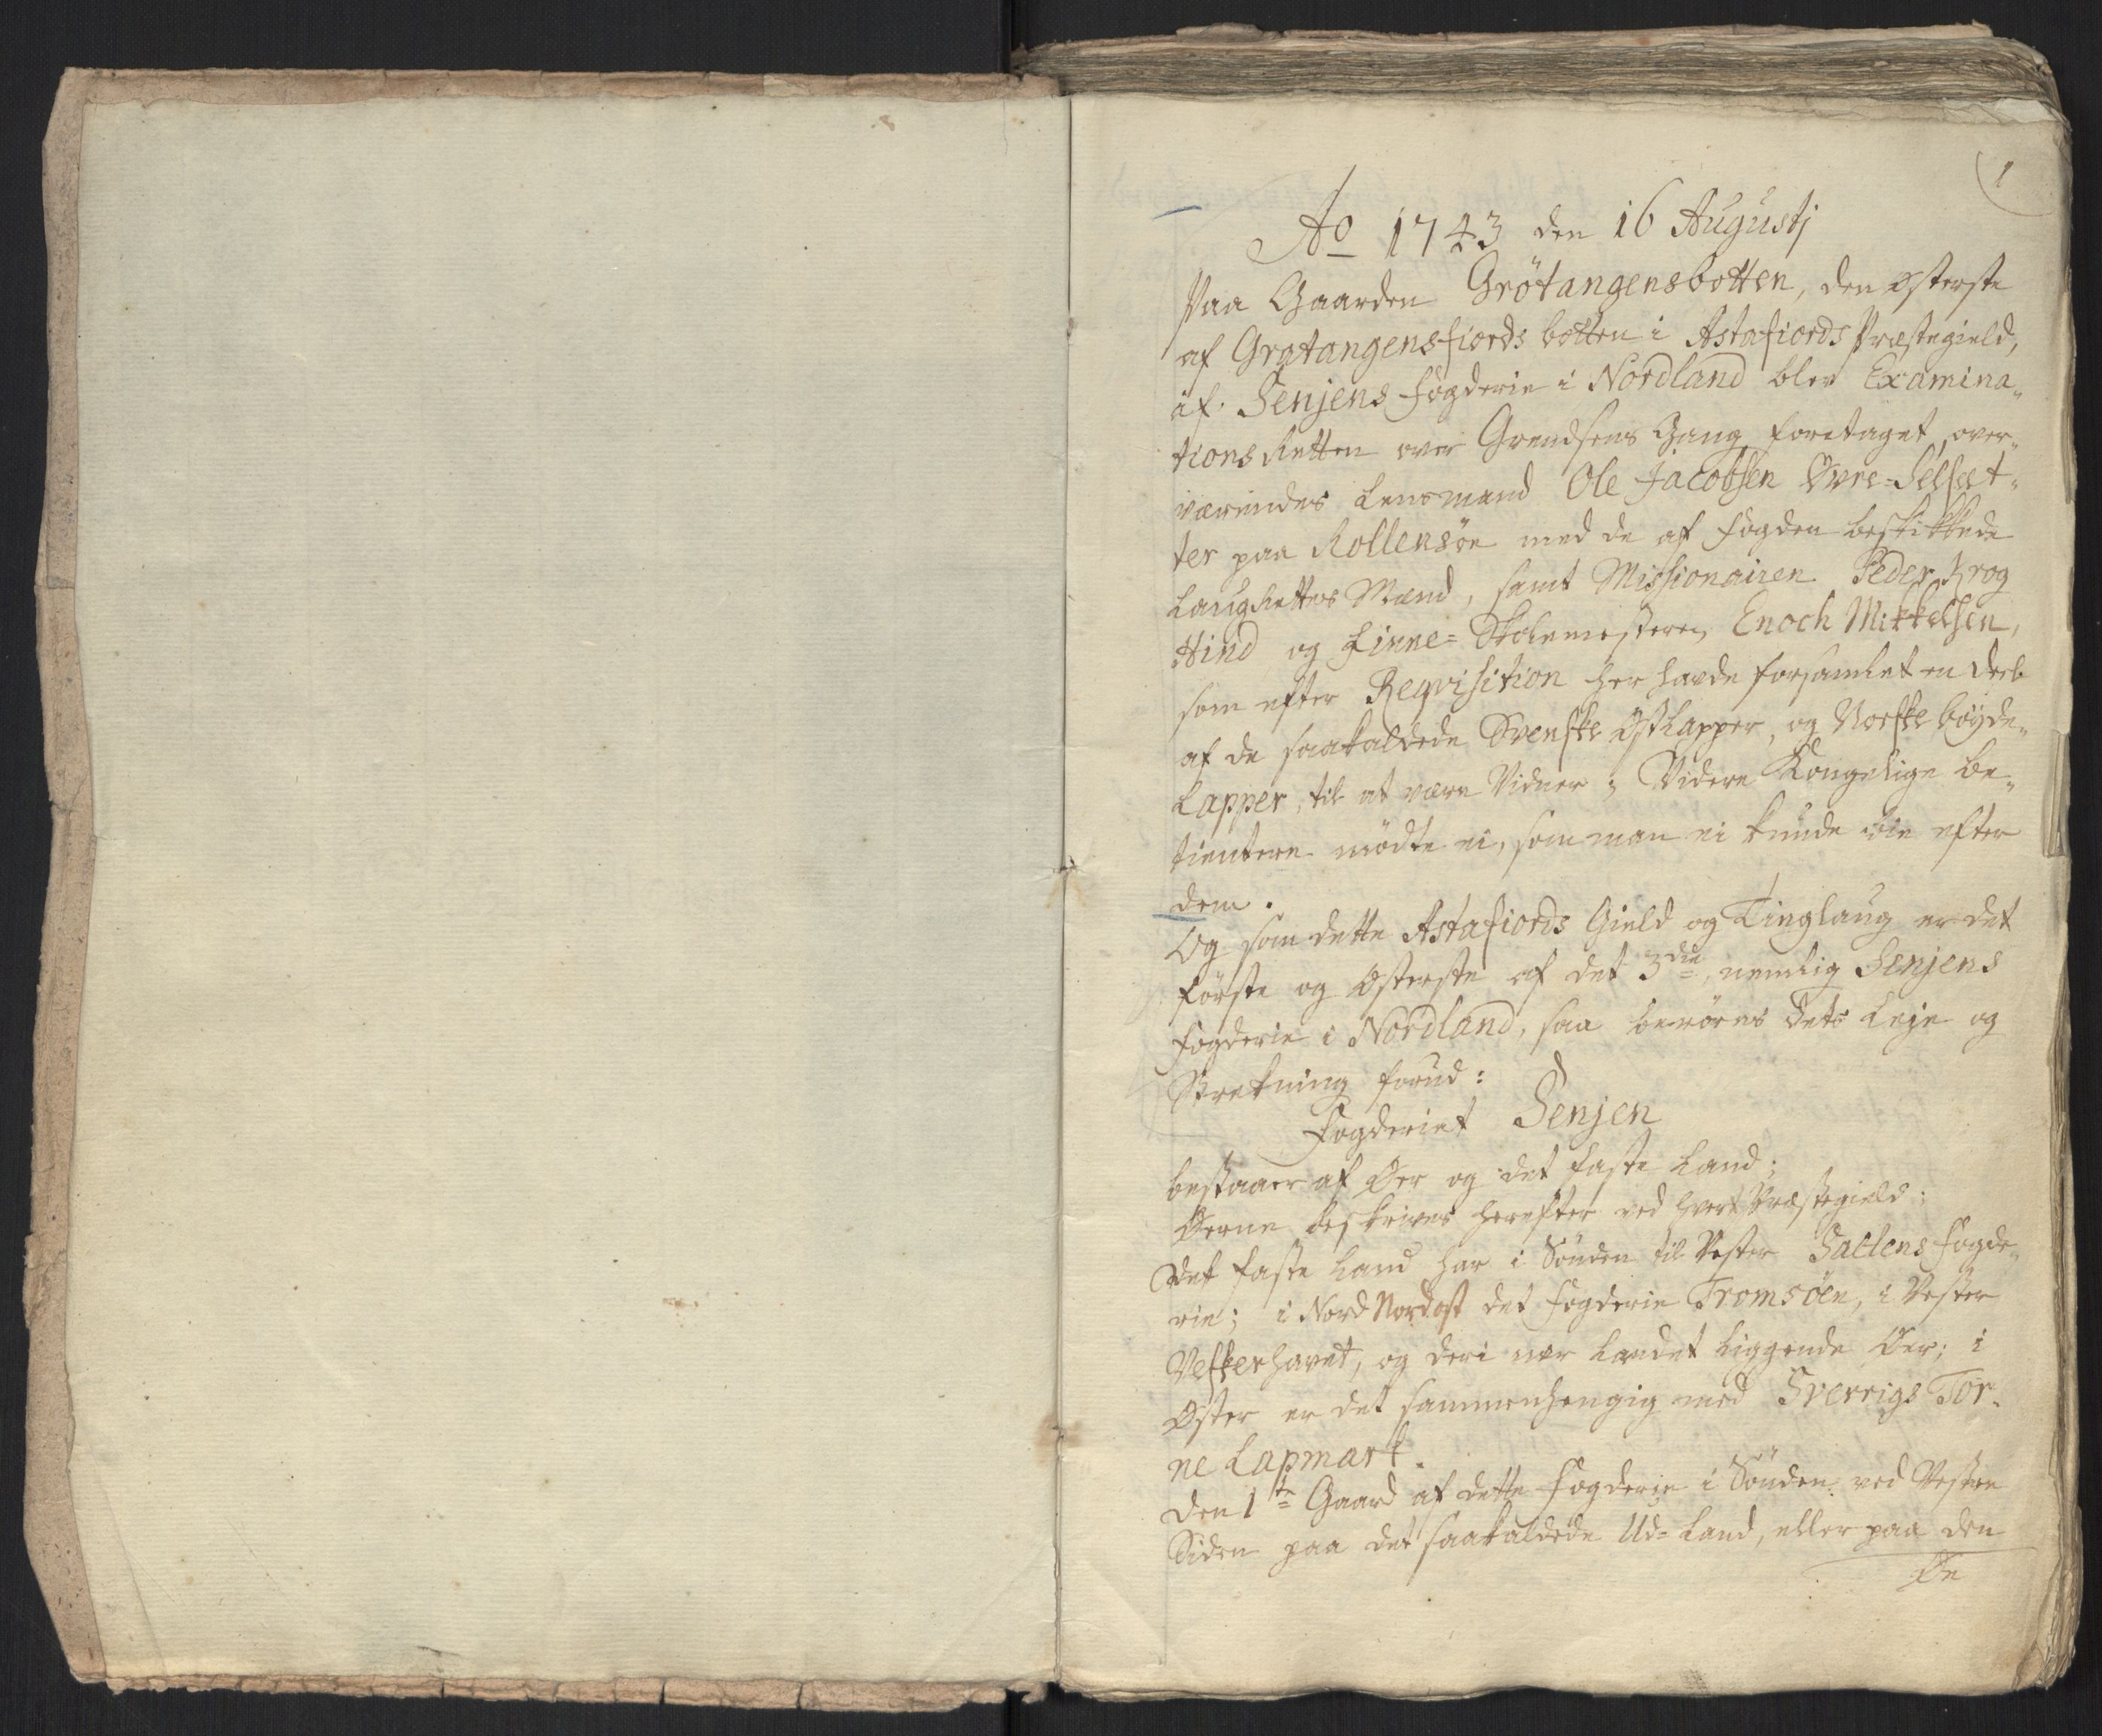 1
Ao 1743 den 16 Augustj
Paa Gaarden Grötangensbotten, den Østerste
af Gratangensfiords botten i Astafiords Præstegield,
af Senjens Fogderie i Nordland blev Examina„
tions Retten over Grendsens Gang foretaget, over„
værendes Lensmand Ole Jacobsen Övre=Selset„
ter paa Rollensöe med de af Fogden beskikkede
LaugRettes Mænd, samt Missionairen Peder Krog
Hind og Finne=Skolemesteren Enoch Mikkelsen,
som efter Reqvisition her havde forsamlet en deel
af de saakaldede Svenske Østlapper, og Norskeböyde„
Lapper, til at være Vidner; Videre Kongelige be„
tientere mödte ei, som man ei kunde bie efter
dem.
Og som dette Astafiords Gield og Tinglaug er det
förste og Østerste af det 3die, nemlig Senjens
Fogderie i Nordland, saa beröres dets Leje og
Strekning forud:
Fogderiet Senjen
bestaaer af Øer og det faste Land;
Øerne beskrives herefter ved hvert Præstegield:
Det faste Land har i Sönden til Vester Saltens Fogde„
rie; i Nord Nordost det Fogderie Tromsöen, i Vester
Vesterhavet, og deri nær Landet liggende Øer; i
Øster er det sammenhengig med Sverrigs Tor„
ne Lapmark.
Den 1te Gaard af dette Fogderie i Sönden ved Vestre
Siden paa det saakaldede Ud=Land, eller paa den
Øe